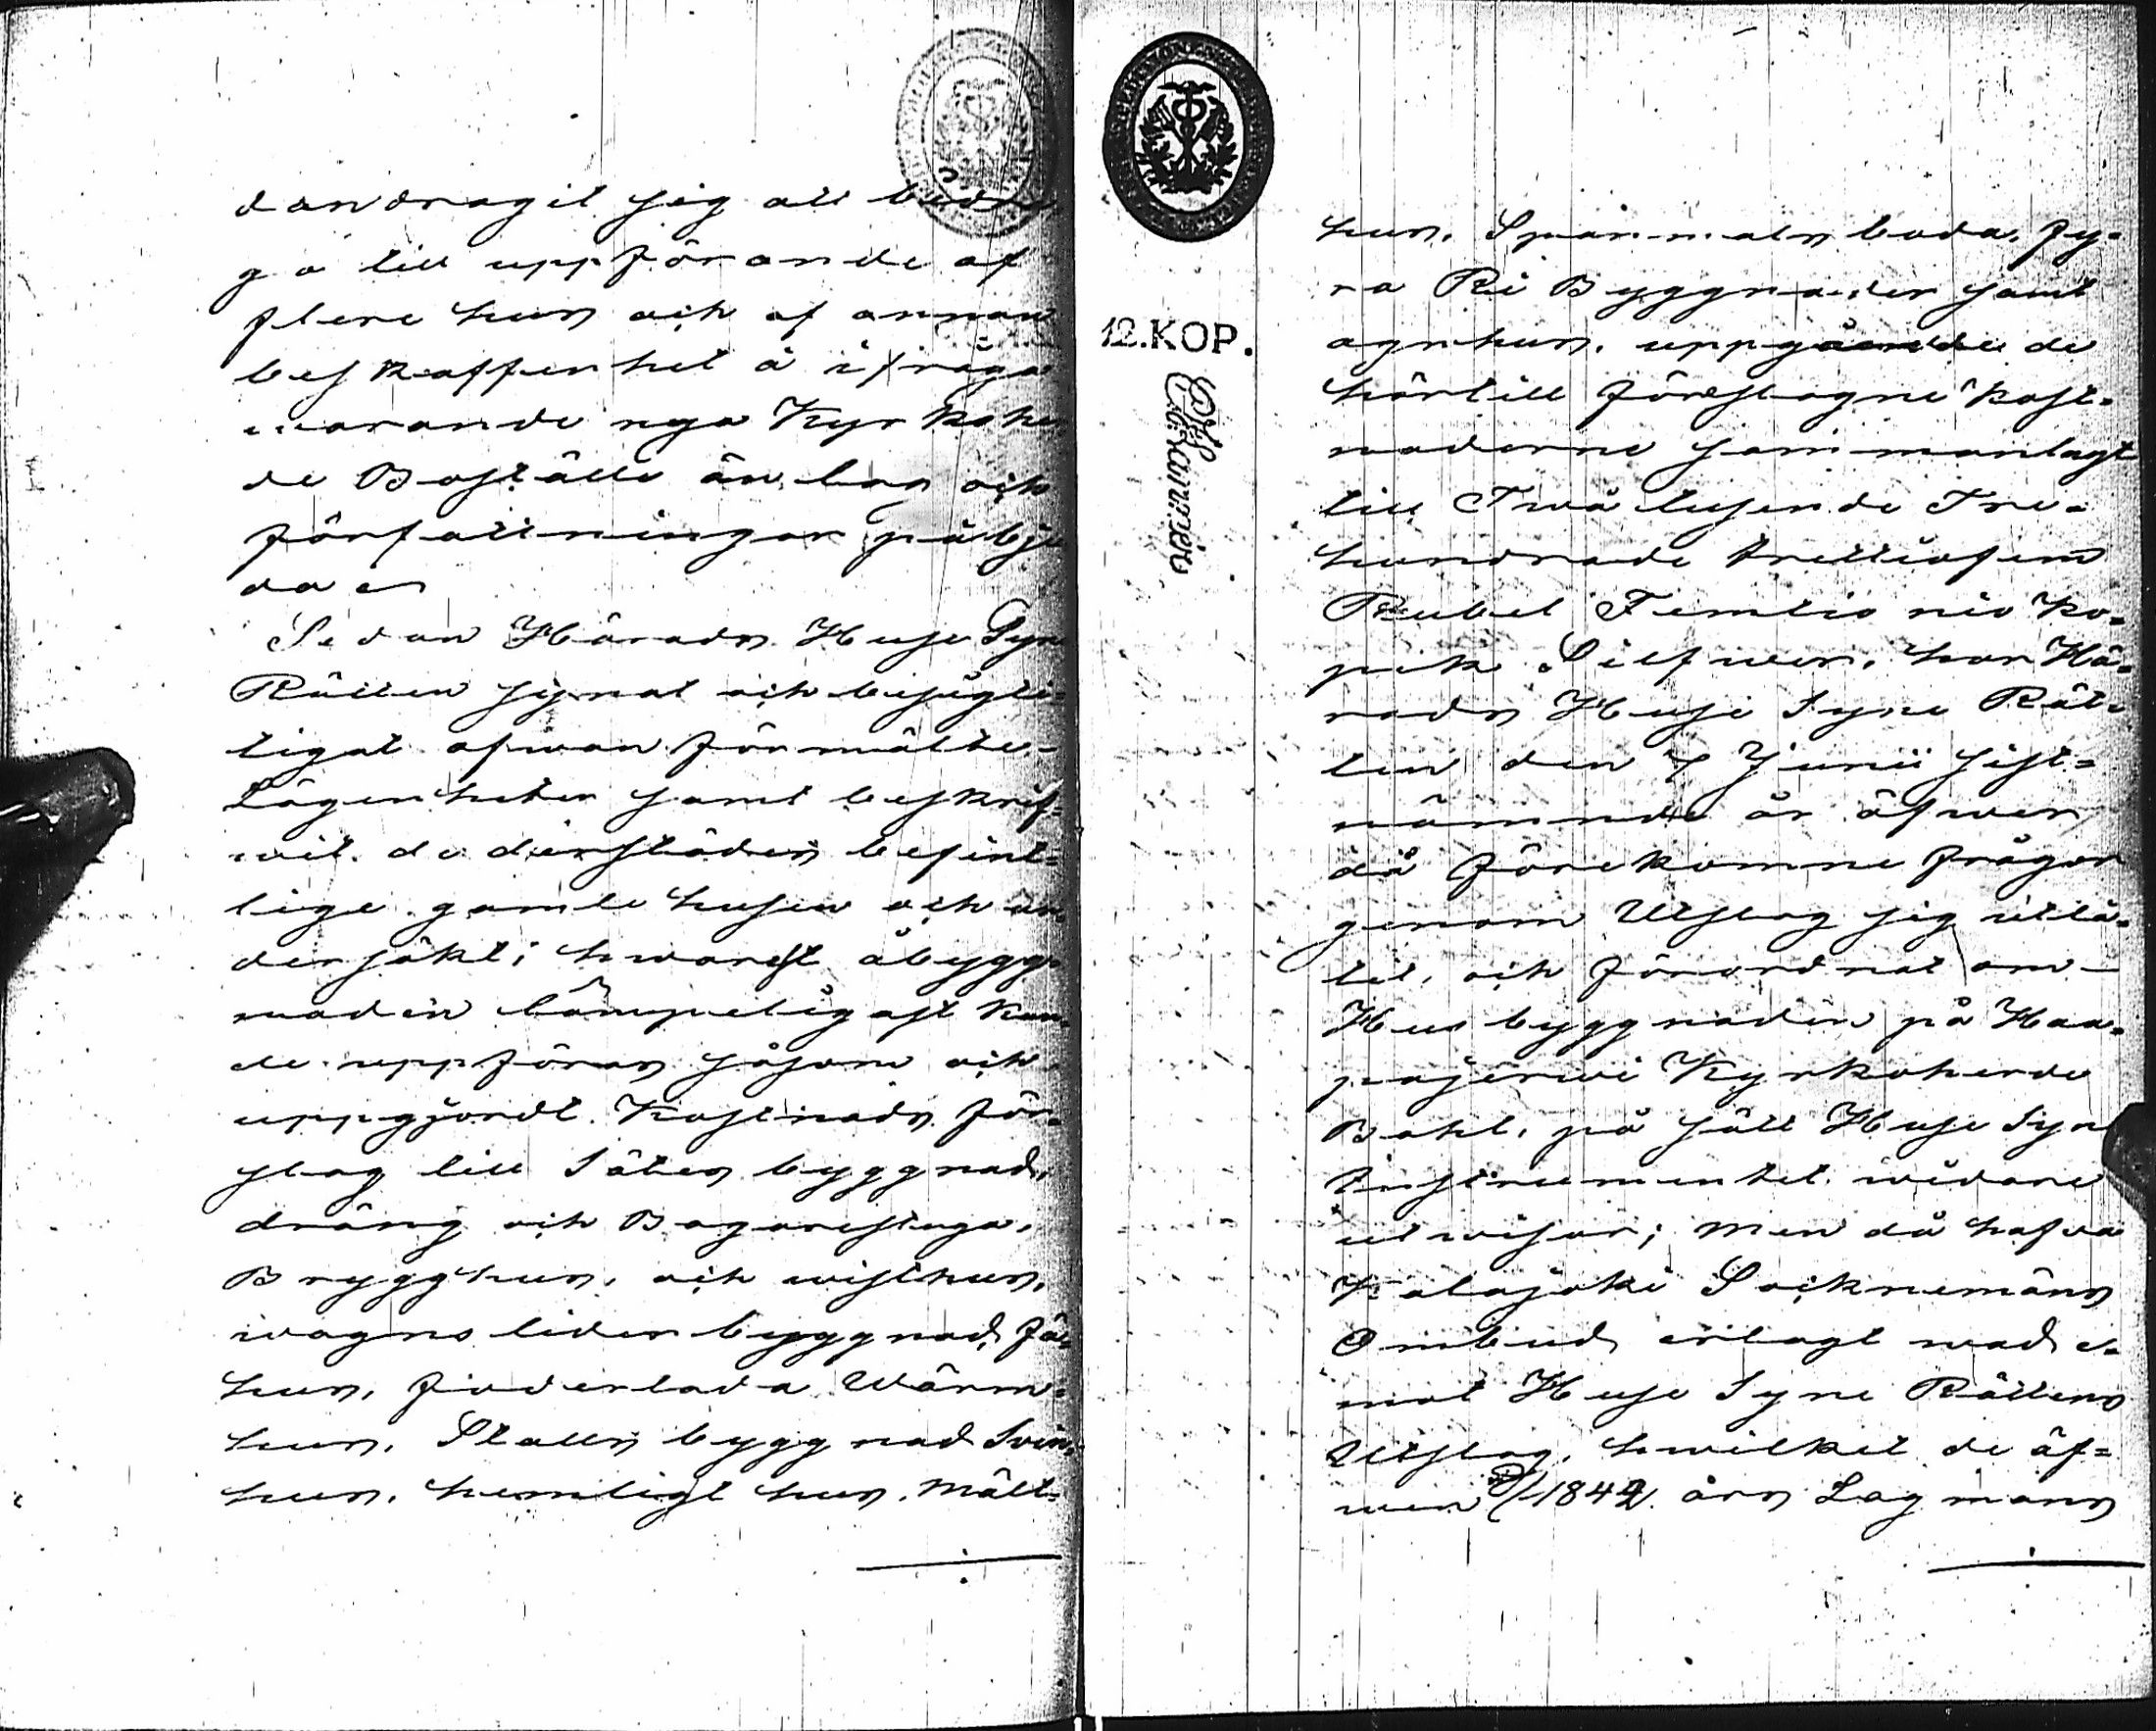 dandragit sig att bidra
ga till uppförande af
flere hus och af annan
beskaffenhet å ifråga
warande nya Kyrkohe
de Boställe än lag och
författningar påbju
da
Sedan Härads Huse Syne
Rätten synat och besigti=
tigat ofwan förmälte
Lägenheter samt beskrif=
wit de derstädes befint=
lige gamle husen och un
dersökt; hwarest åbygg=
naden lämpeligast kun
de uppföras såsom och
uppgjordt Kostnads för=
slag till Sätes byggnad,
dräng och Bagarestuga,
Brygghus, och wisthus,
wagns lider byggnad, fä
hus, foderlada Wärm=
hus, Stalls byggnad Svin=
hus, hemligt hus, Mält=
12.KOP.
hus, Spanmåls boda, fy=
ra Ri Byggnader samt
agnhus, uppgående de
härtill föreslagne kost=
naderne sammanlagt
till Twå tusende Tre=
hundrade trettiofem
Rubel Femtio nio Ko=
pek Silfwer, har Hä=
rads Huse Syne Rät=
ten den 7 Junii sist=
nämnde år öfwer
då förekomne frågor
genom Utslag sig utlå=
tit, och förordnat om
Hus byggnaden på Haa=
pajärwi Kyrkoherde
Bohl, på sätt Huse Syns
Instrumentet widare
utwisar; men då hafva
Kalajoki Socknemäns
Ombud erlagt wad e=
mot Huse Syne Rättens
Utslag, hwilket de äf=
wen 1842 års Lagmans